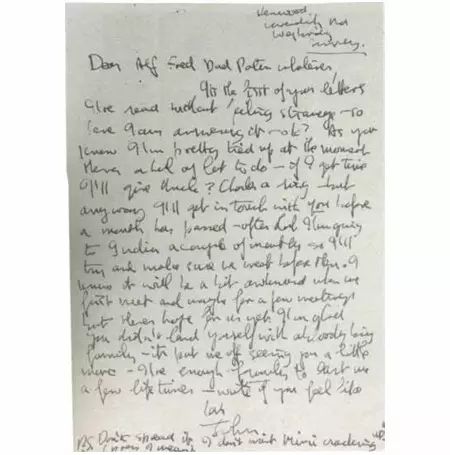 Kenwood
Cavendish Rd
Weybridge
Surrey.
Dear Alf Fred Dad Pater whatever,
It's the first of your letters
I've read without feeling strange – so
here I am answering it – ok? As you
know I'm pretty tied up at the moment
there's a hell of lot to do – if I get time
I'll give Uncle? Charles a ring – but
anyway I'll get in touch with you before
a month has passed – after that I'm going
to India a couple of months so I'll
try and make sure we meet before then. I
know it will be a bit awkward when we
first meet and maybe for a few meetings
but there's hope for us yet. I'm glad
you didn't land yourself with a bloody big
family – it's put me off seeing you a little
more – I've enough family to last me
a few life times – write if you feel like
John
PS Don't spread it. I don't want Mimi cracking up!